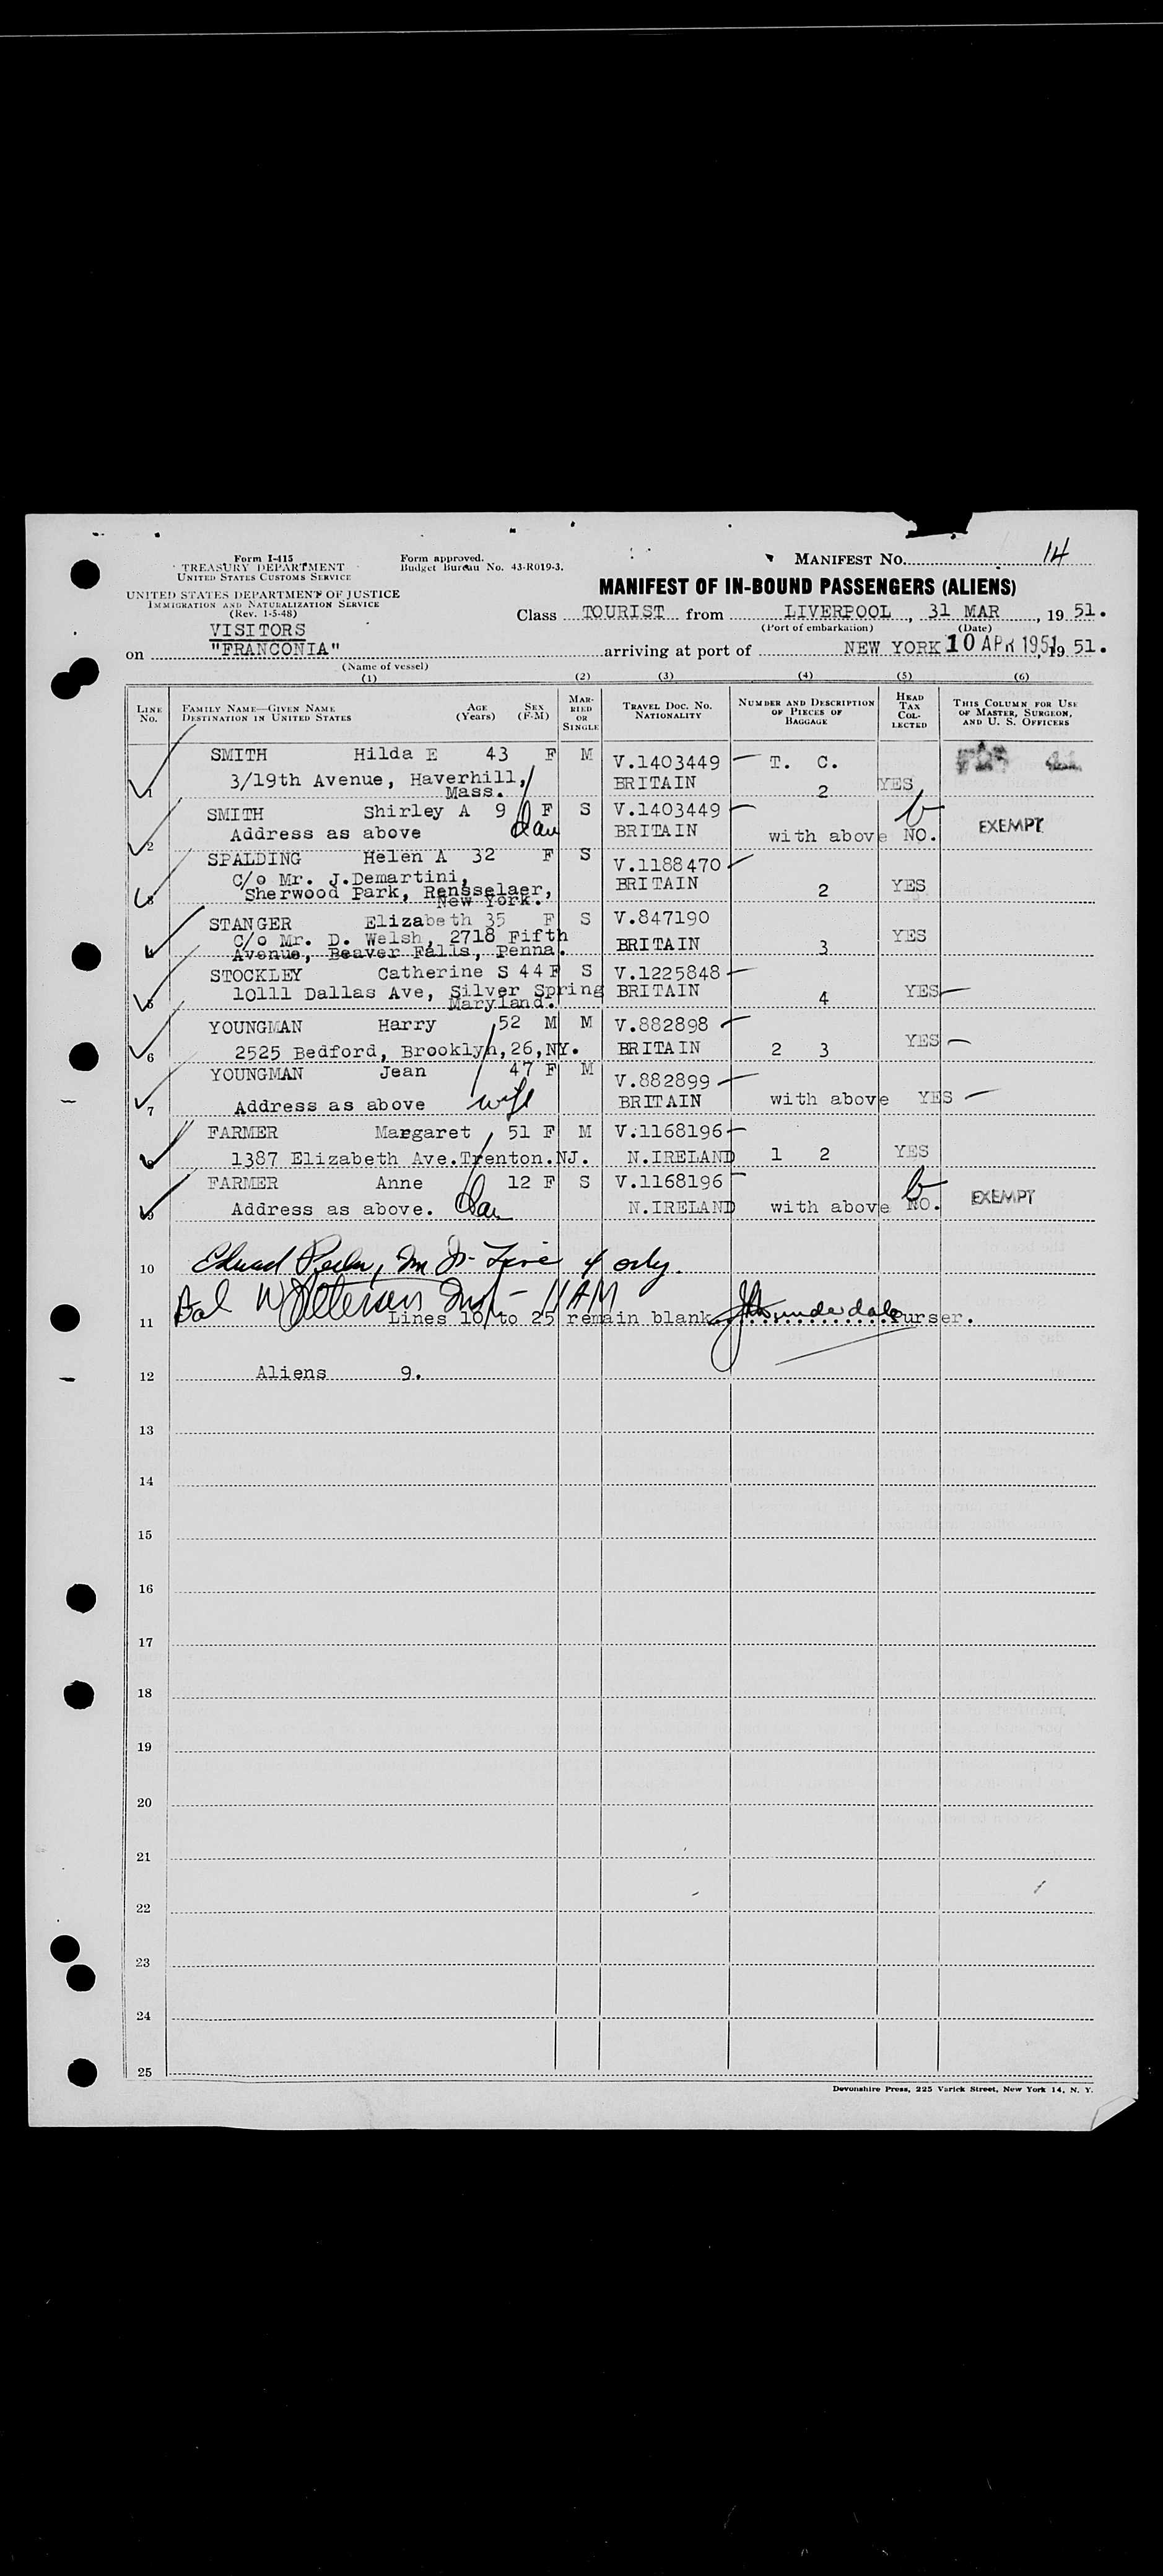 Form I-415
TREASURY DEPARTMENT
UNITED STATES CUSTOMS SERVICE
Form approved.
Budget Bureau No. 43-R019-3.
MANIFEST No. 14
UNITED STATES DEPARTMENT OF JUSTICE
IMMIGRATION AND NATURALIZATION SERVICE
(Rev. 1-5-48)
MANIFEST OF IN-BOUND PASSENGERS (ALIENS)
Class TOURIST from LIVERPOOL, 31 MAR, 19 51.
(Port of embarkation) (Date)
VISITORS
on "FRANCONIA" arriving at port of NEW YORK 10 APR 1951, 19 51.
(Name of vessel)
(1) (2) (3) (4) (5) (6)
LINE No. FAMILY NAME—GIVEN NAME DESTINATION IN UNITED STATES AGE (Years) SEX (F-M) MARRIED OR SINGLE TRAVEL DOC. NO. NATIONALITY NUMBER AND DESCRIPTION OF PIECES OF BAGGAGE HEAD TAX COLLECTED THIS COLUMN FOR USE OF MASTER, SURGEON, AND U. S. OFFICERS
SMITH Hilda E 43 F M V.1403449 T. C.
1 3/19th Avenue, Haverhill, Mass. BRITAIN 2 YES
SMITH Shirley A 9 F S V.1403449
2 Address as above dau BRITAIN with above NO. EXEMPT
SPALDING Helen A 32 F S V.1188470
C/o Mr. J.Demartini,
3 Sherwood Park, Rensselaer, New York. BRITAIN 2 YES
STANGER Elizabeth 35 F S V.847190
C/o Mr. D. Welsh, 2718 Fifth
4 Avenue, Beaver Falls, Penna. BRITAIN 3 YES
STOCKLEY Catherine S 44 F S V.1225848
5 10111 Dallas Ave, Silver Spring Maryland. BRITAIN 4 YES
YOUNGMAN Harry 52 M M V.882898
6 2525 Bedford, Brooklyn, 26, NY. BRITAIN 2 3 YES
YOUNGMAN Jean 47 F M V.882899
7 Address as above wife BRITAIN with above YES
FARMER Margaret 51 F M V.1168196
8 1387 Elizabeth Ave.Trenton.NJ. N.IRELAND 1 2 YES
FARMER Anne 12 F S V.1168196
9 Address as above. dau N.IRELAND with above NO. EXEMPT
10 4 only
Bal 11 AM
11 Lines 10 to 25 remain blank Purser.
12 Aliens 9.
13
14
15
16
17
18
19
20
21
22
23
24
25
Devonshire Press, 225 Varick Street, New York 14, N. Y.